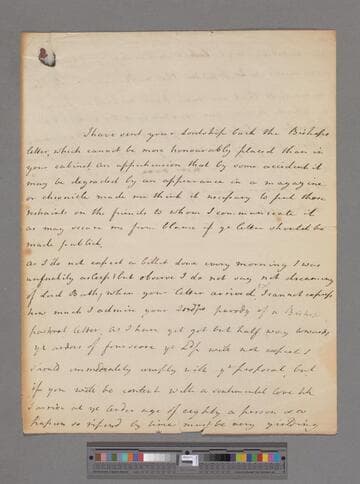 I have sent your Lordship back the Bishops
letter, which cannot be more honourably placed than in
your cabinet. An apprehension that by some accident it
may be degraded by an appearance in a magazine
or chronicle made me think it necessary to put those
restraints on the friends to whom I communicate it
as may secure me from blame if ye letter should be
made publick.
As I do not expect a billet doux every morning I was
asleep but observe I do not say not dreaming
of Lord Bath, when your letter arrived. I cannot express
how much I admire your Lordps parody of a Bishops
pastoral letter. As I have yet got but half way towards
ye ardors of fourscore yr Ldp will not expect I
should immediately comply with yr proposal, but
if you will be content with a sentimental love till
I arrive at ye tender age of eighty a person &
so ripend by time must be very yielding